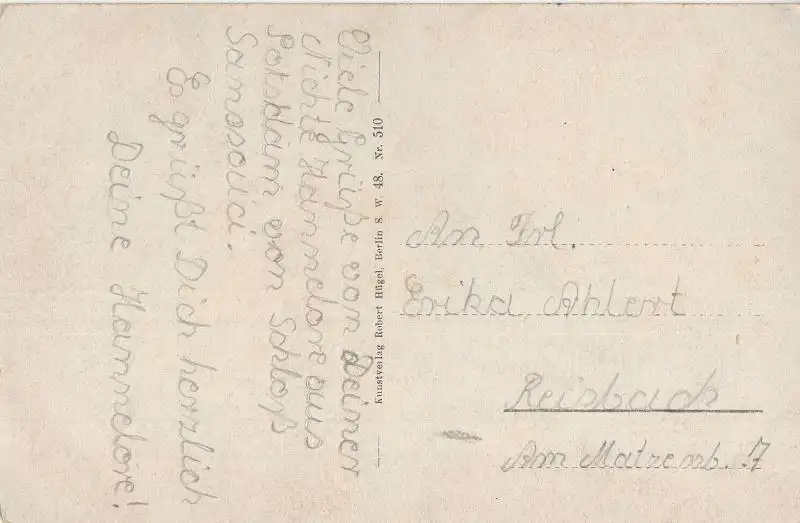 Viele Grüße von Deiner
Nichte Hannelore aus
Potsdam von Schloß
Sanssouci.
Es grüßt Dich herzlich
Deine Hannelore!
Kunstverlag Robert Hügel, Berlin S. W. 48. Nr. 510
An Frl.
Erika Ahlert
Reisbach
Am 7